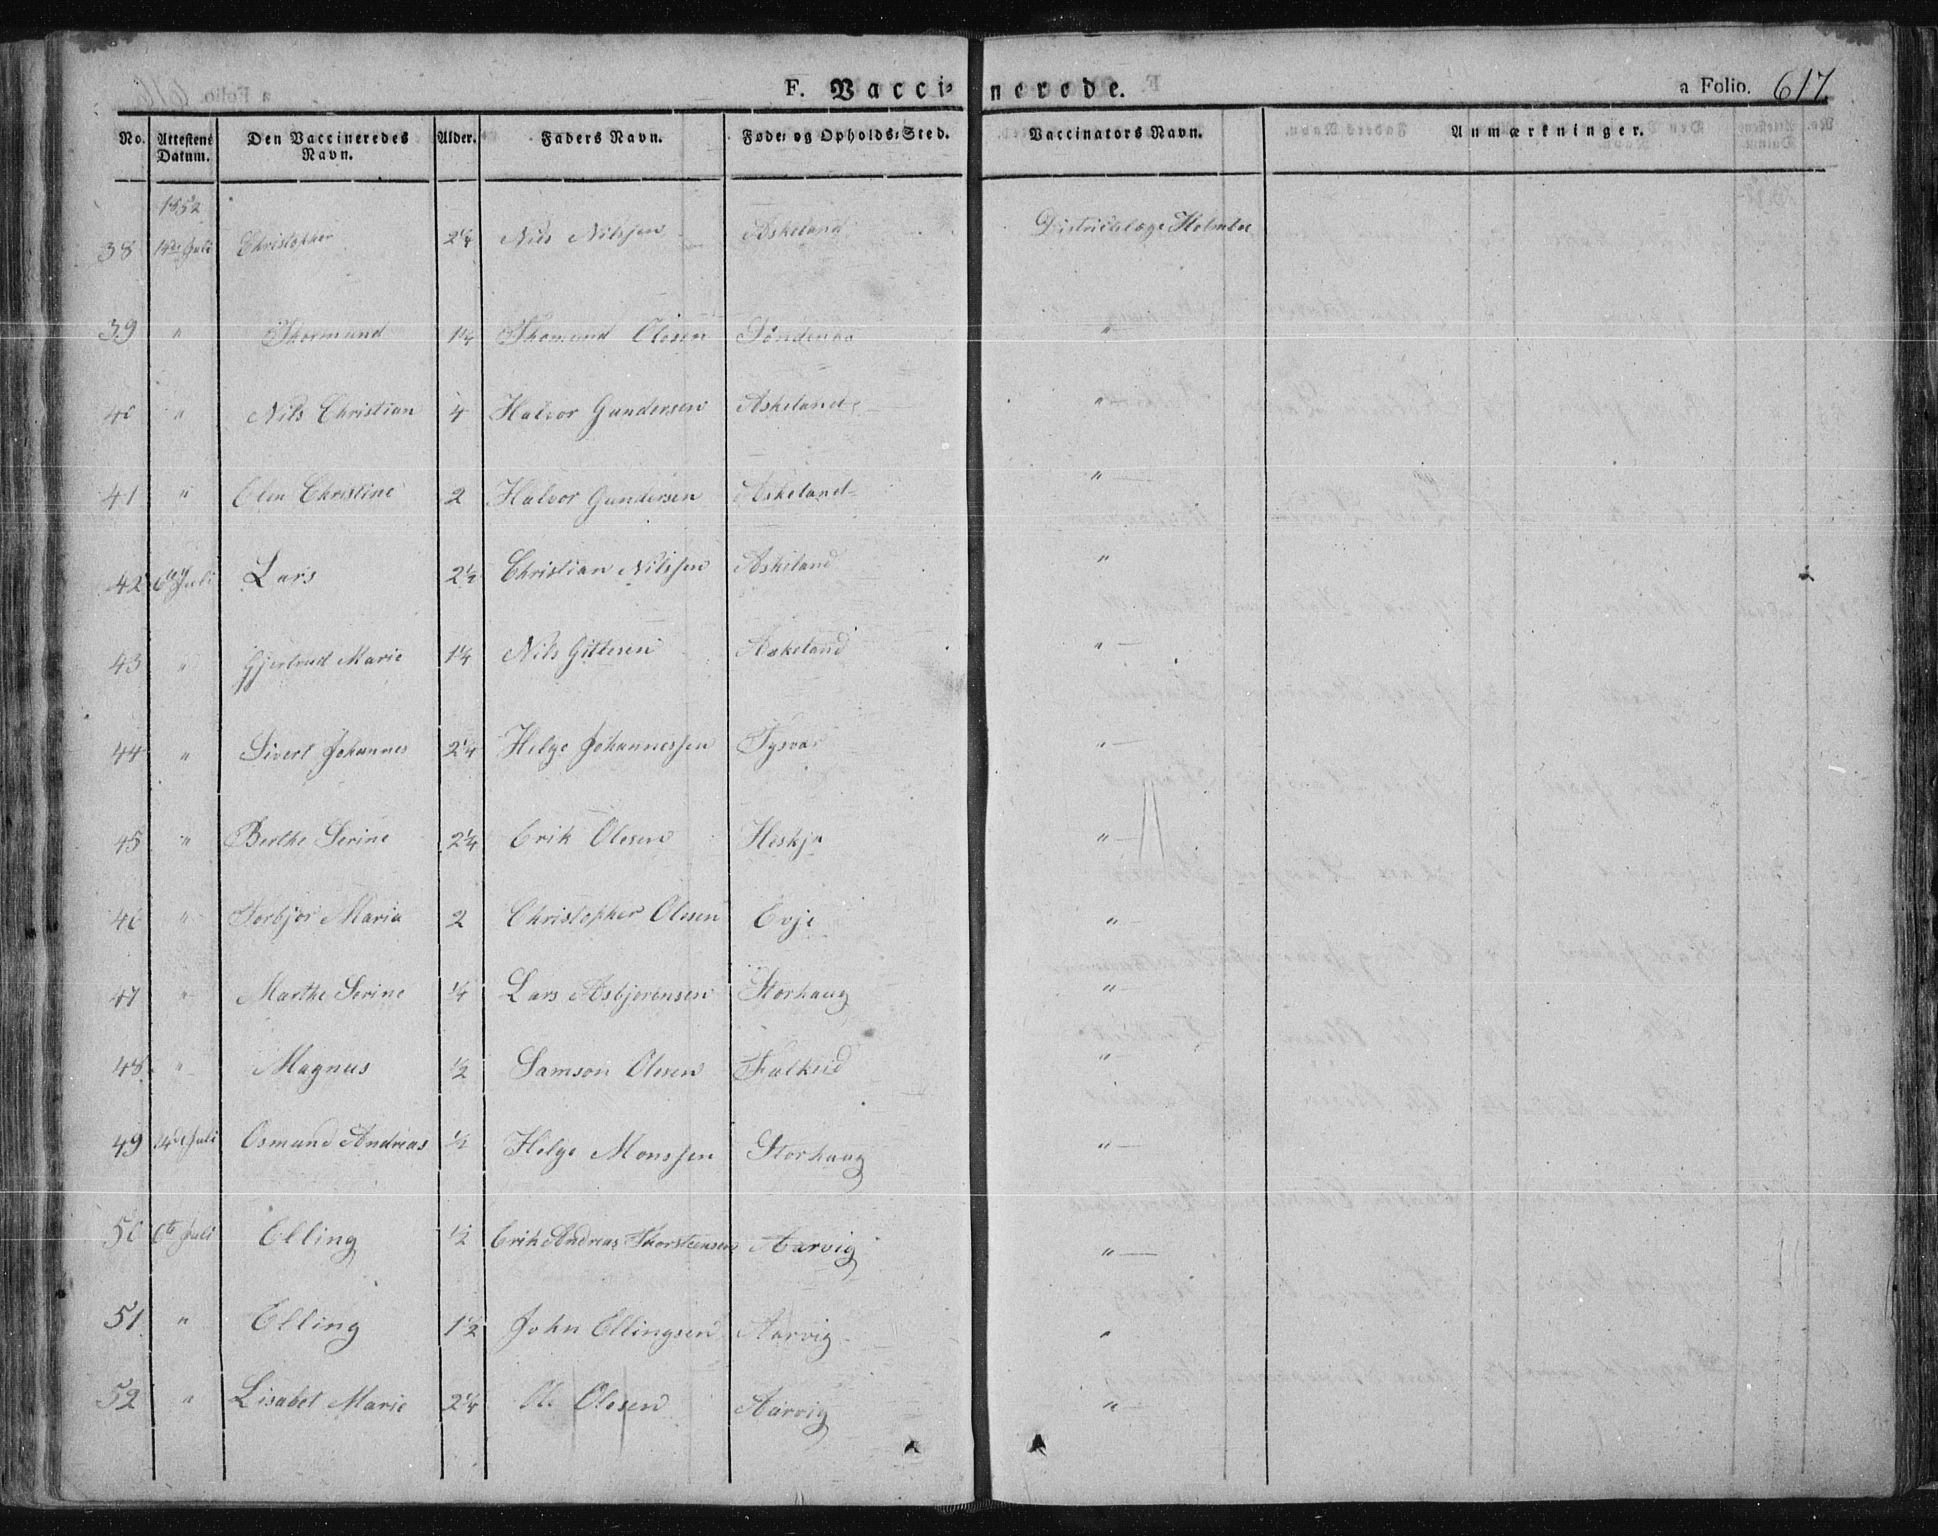 F. Vaccinerede. a Folio. 617.
No. Attestens Datum. Den Vaccineredes Navn. Alder. Faders Navn. Føde- og Opholds-Sted. Vaccinators Navn. Anmærkninger.
1852
38 14de Juli Christopher 2¼ Nils Nilssen Askeland Districtslæge Holmboe
39 " Thormund 1¼ Thomund Olesen Søndenaa "
40 " Nils Christian 4 Halvor Gundersen Askeland "
41 " Olen Christine 2 Halvor Gundersen Askeland "
42 6te Juli Lars 2½ Christian Nilssen Askeland "
43 " Gjertrud Marie 1¼ Nils Gittesen Askeland "
44 " Sivert Johannes 2¼ Helge Johannessen Tysvær "
45 " Berthe Serine 2¼ Erik Olesen Heskja "
46 " Torbjør Maria 2 Christopher Olesen Evje "
47 " Marthe Serine ¼ Lars Asbjørensen Storhaug "
48 " Magnus ½ Samson Olesen Falkeid "
49 14de Juli Osmund Andreas ½ Helge Monssen Storhaug "
50 6te Juli Elling ½ Erik Andreas Thorsteensen Aarvig "
51 " Elling 1½ John Ellingsen Aarvig "
52 " Lisabet Marie 2¼ Ole Olesen Aarvig "